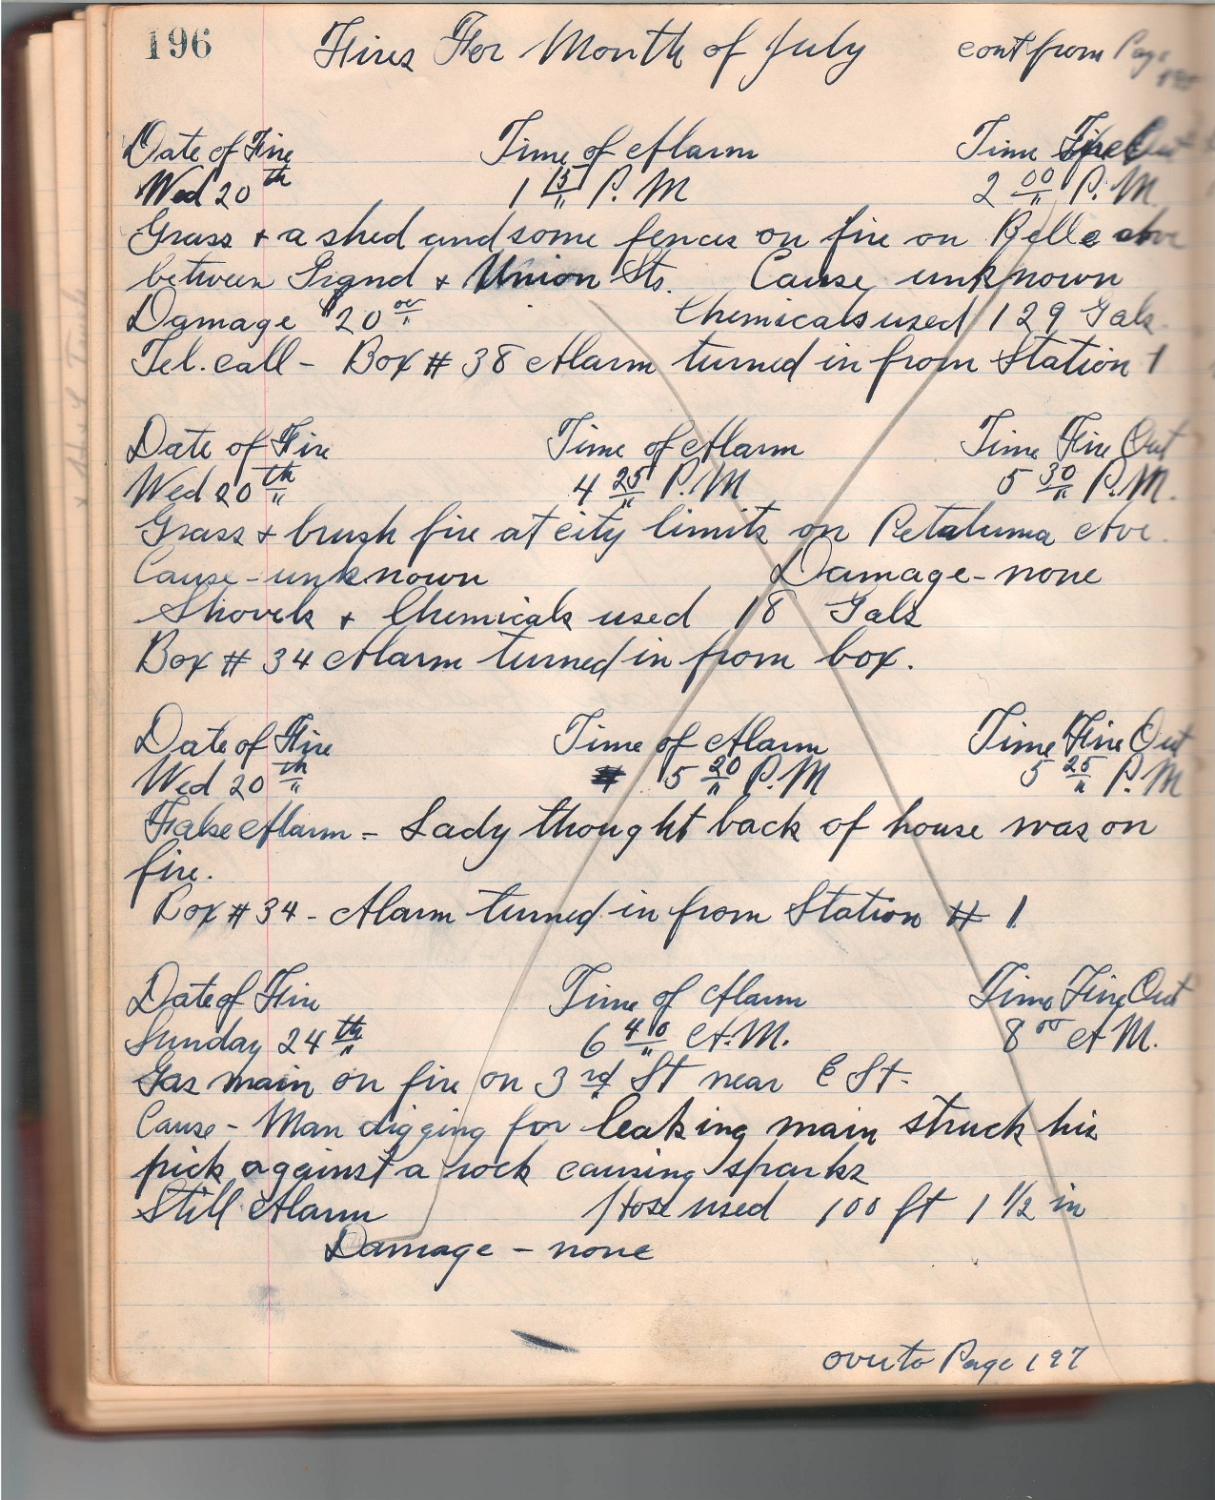 196
Fires For Month of July cont from Page 195
Date of Fire Time of Alarm Time Fire Out
Wed 20th 1 15 P.M 2 00 P.M.
Grass + a shed and some fences on fire on Belle Ave
between Grand + Union Sts. Cause unknown
Damage $20 00 Chemicals used 129 Gals.
Tel. call - Box # 38 Alarm turned in from Station 1
Date of Fire Time of Alarm Time Fire Out
Wed 20th 4 25 P.M 5 30 P.M.
Grass + brush fire at city limits on Petaluma Ave.
Cause - unknown Damage - none
Shovels + Chemicals used 18 Gals
Box # 34 Alarm turned in from box.
Date of Fire Time of Alarm Time Fire Out
Wed 20th 5 20 P.M 5 25 P.M
False Alarm - Lady thought back of house was on
fire.
Box # 34 - Alarm turned in from Station # 1
Date of Fire Time of Alarm Time Fire Out
Sunday 24th 6 40 A.M. 8 00 A M.
Gas main on fire on 3rd St near E St.
Cause - Man digging for leaking main struck his
pick against a rock causing sparks
Still Alarm Hose used 100 ft 1 1/2 in
Damage - none
over to Page 197